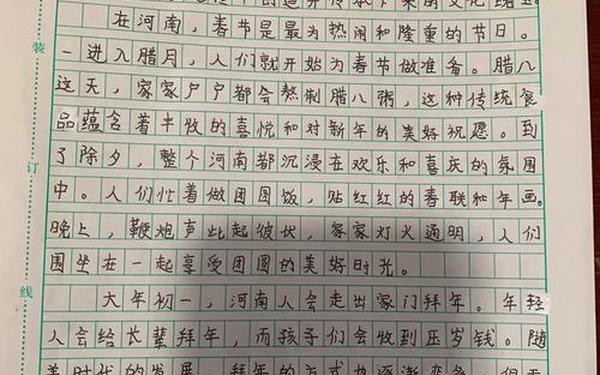 在河南，春节是最为热闹和隆重的节日。
一进入腊月，人们就开始为春节做准备。腊八
这天，家家户户都会熬制腊八粥，这种传统食
品蕴含着丰收的喜悦和对新年的美好祝愿。到
了除夕，整个河南都沉浸在欢乐和喜庆的氛围
中。人们忙着做团圆饭，贴红红的春联和年画。
晚上，鞭炮声此起彼伏，家家灯火通明，人们
围坐在一起享受团圆的美好时光。
大年初一，河南人会走出家门拜年。年轻
人会给长辈拜年，而孩子们会收到压岁钱。随
着时代的发展，拜年的方式也逐渐变多，但无
装
订
线